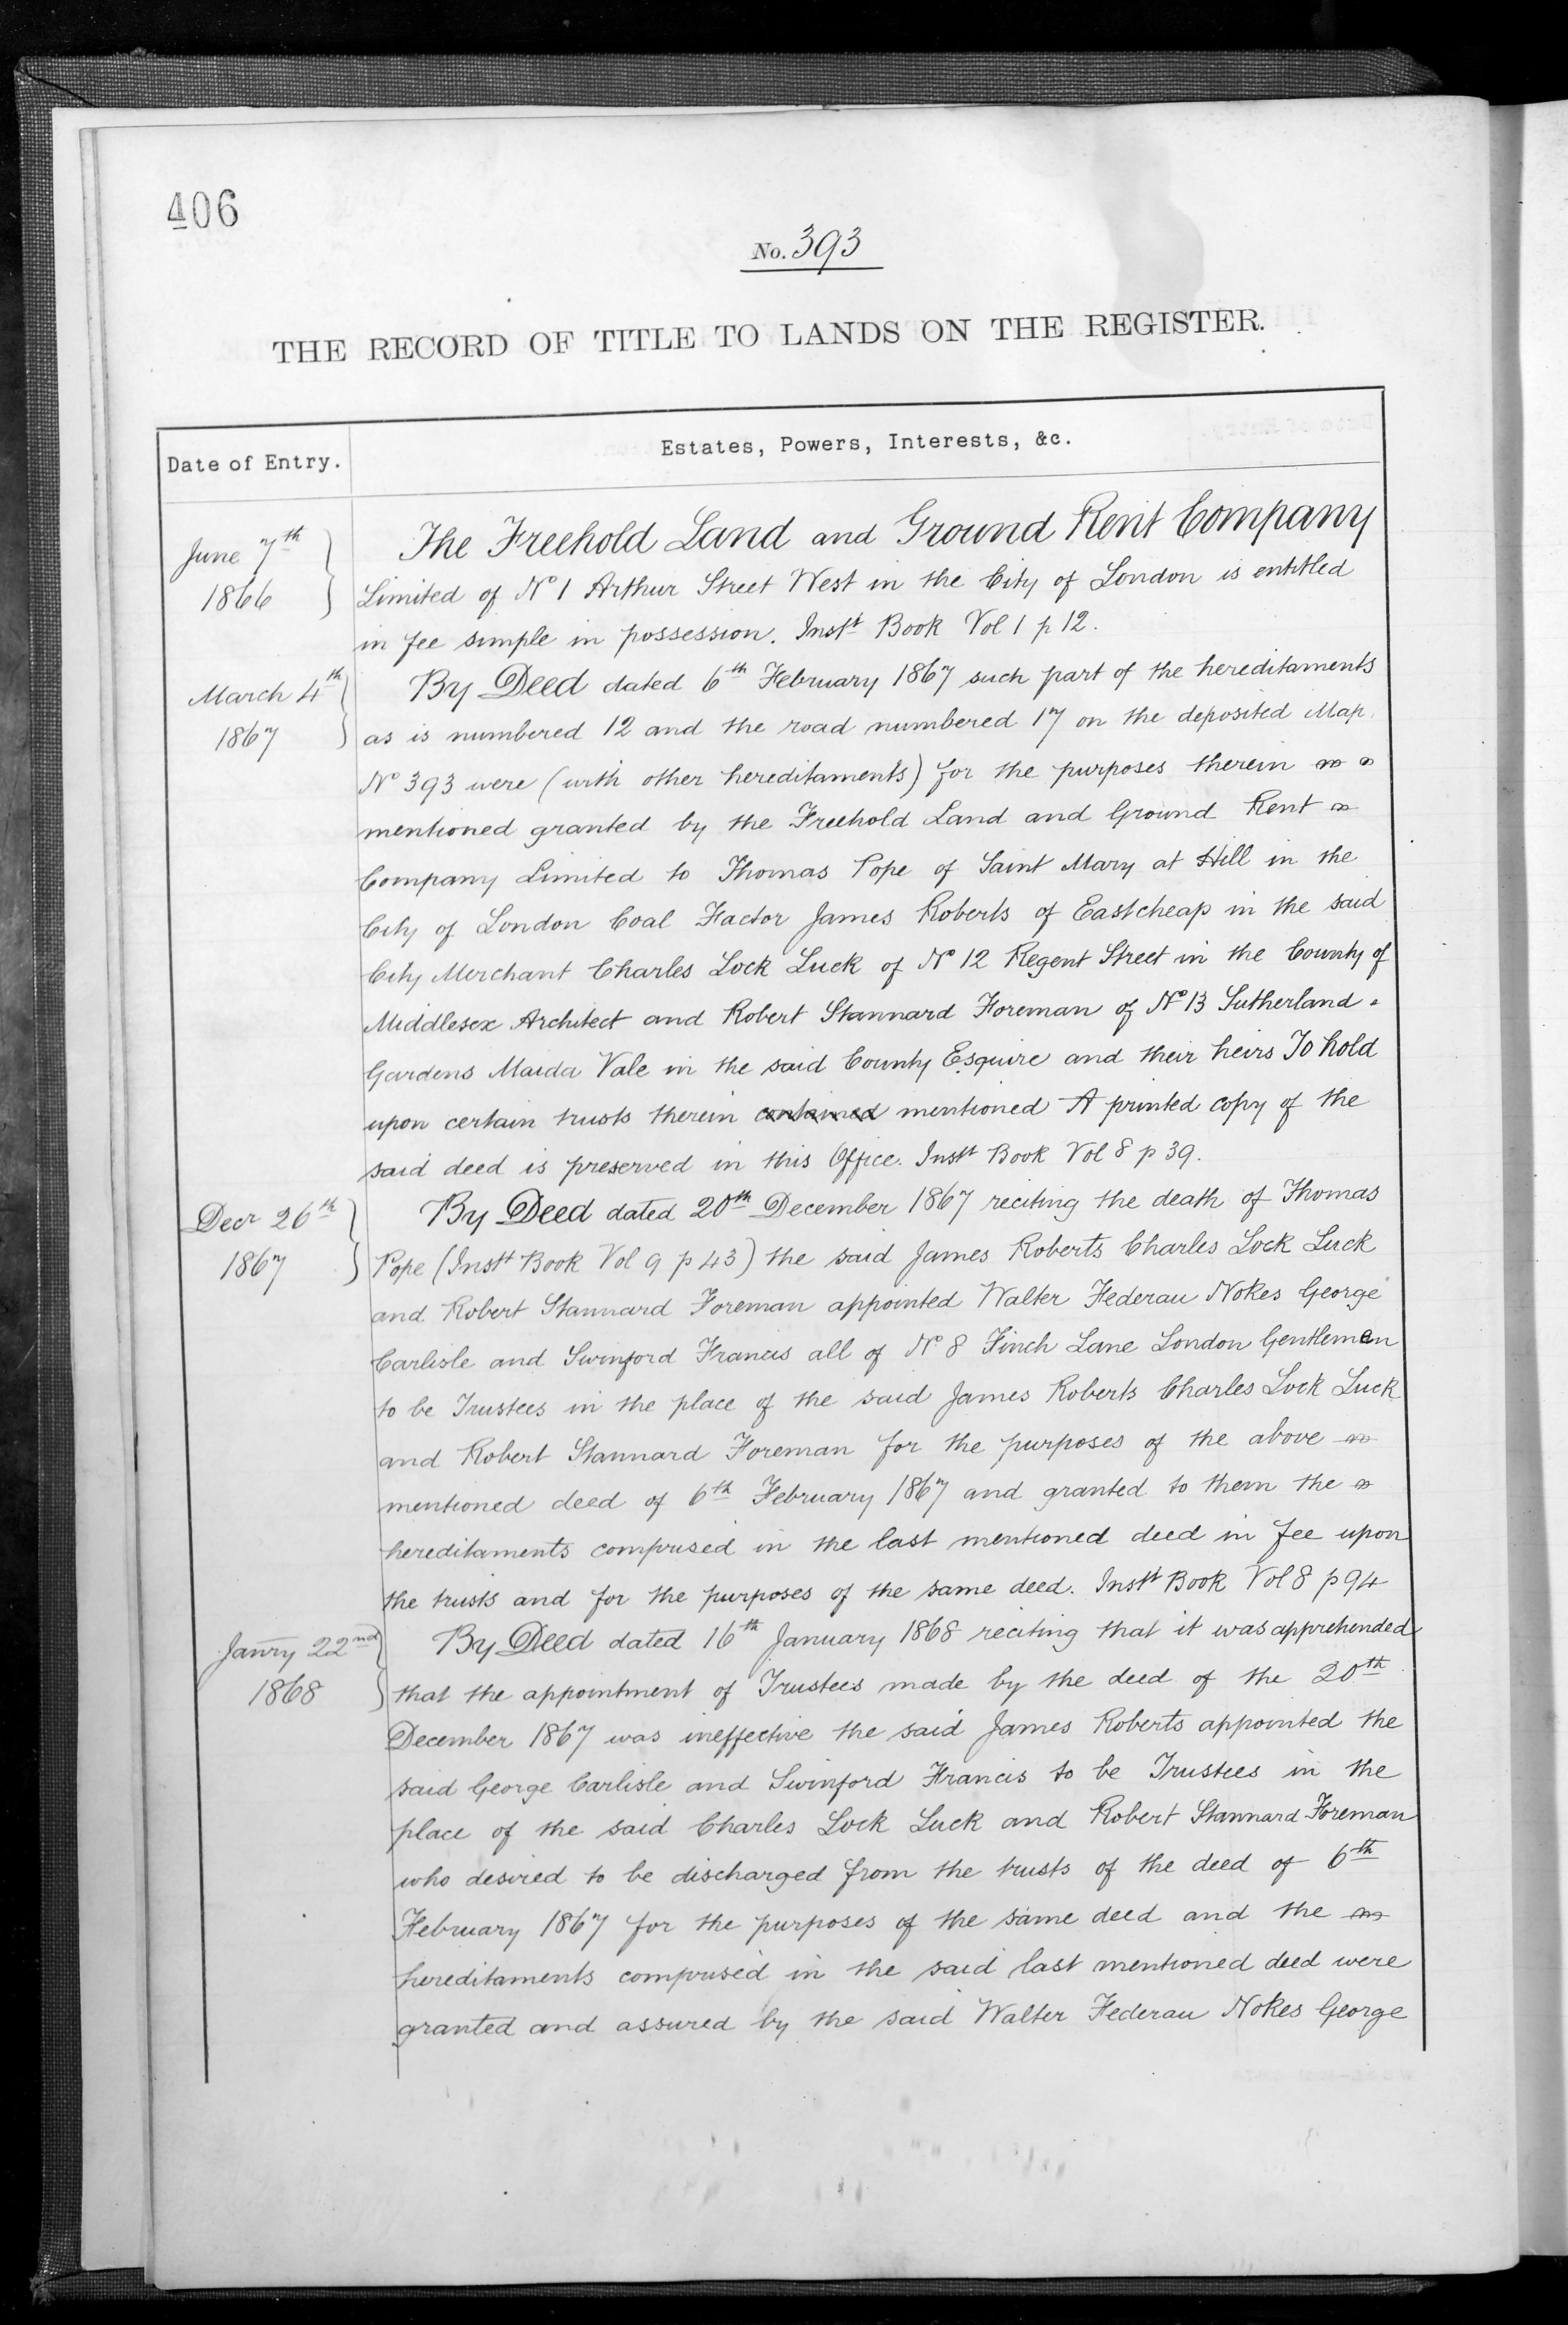 406
No. 393
THE RECORD OF TITLE TO LANDS ON THE REGISTER.
Date of Entry.
Estates, Powers, Interests, &c.
June 7th
1866
The Freehold Land and Ground Rent Company
Limited of No 1 Arthur Street West in the City of London is entitled
in fee simple in possession. Instt Book Vol 1 p 12.
March 4th
1867
By Deed dated 6th February 1867 such part of the hereditaments
as is numbered 12 and the road numbered 17 on the deposited Map.
No 393 were (with other hereditaments) for the purposes therein
mentioned granted by the Freehold Land and Ground Rent
Company Limited to Thomas Pope of Saint Mary at Hill in the
City of London Coal Factor James Roberts of Eastcheap in the said
City Merchant Charles Lock Luck of No 12 Regent Street in the County of
Middlesex Architect and Robert Stannard Foreman of No 13 Sutherland
Gardens Maida Vale in the said County Esquire and their heirs To hold
upon certain trusts therein contained mentioned A printed copy of the
said deed is preserved in this Office. Instt Book Vol 8 p 39.
Decr 26th
1867
By Deed dated 20th December 1867 reciting the death of Thomas
Pope (Instt Book Vol 9 p 43) the said James Roberts Charles Lock Luck
and Robert Stannard Foreman appointed Walter Federau Nokes George
Carlisle and Swinford Francis all of No 8 Finch Lane London Gentlemen
to be Trustees in the place of the said James Roberts Charles Lock Luck
and Robert Stannard Foreman for the purposes of the above
mentioned deed of 6th February 1867 and granted to them the
hereditaments comprised in the last mentioned deed in fee upon
the trusts and for the purposes of the same deed. Instt Book Vol 8 p 94
Janry 22nd
1868
By Deed dated 16th January 1868 reciting that it was apprehended
that the appointment of Trustees made by the deed of the 20th
December 1867 was ineffective the said James Roberts appointed the
said George Carlisle and Swinford Francis to be Trustees in the
place of the said Charles Lock Luck and Robert Stannard Foreman
who desired to be discharged from the trusts of the deed of 6th
February 1867 for the purposes of the same deed and the
hereditaments comprised in the said last mentioned deed were
granted and assured by the said Walter Federau Nokes George